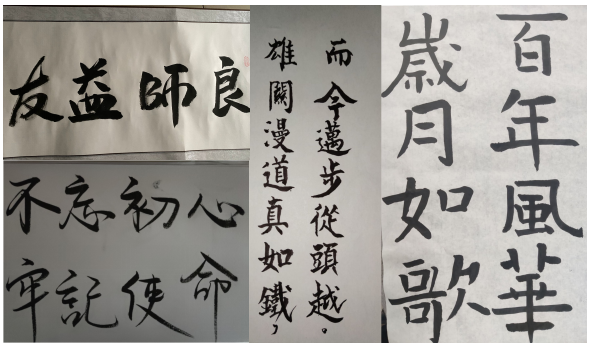 良師益友
不忘初心
牢記使命
雄關漫道真如鐵，
而今邁步從頭越。
百年風華
歳月如歌